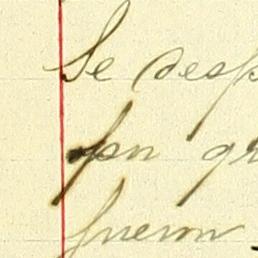 Se desp
con gr
fueron